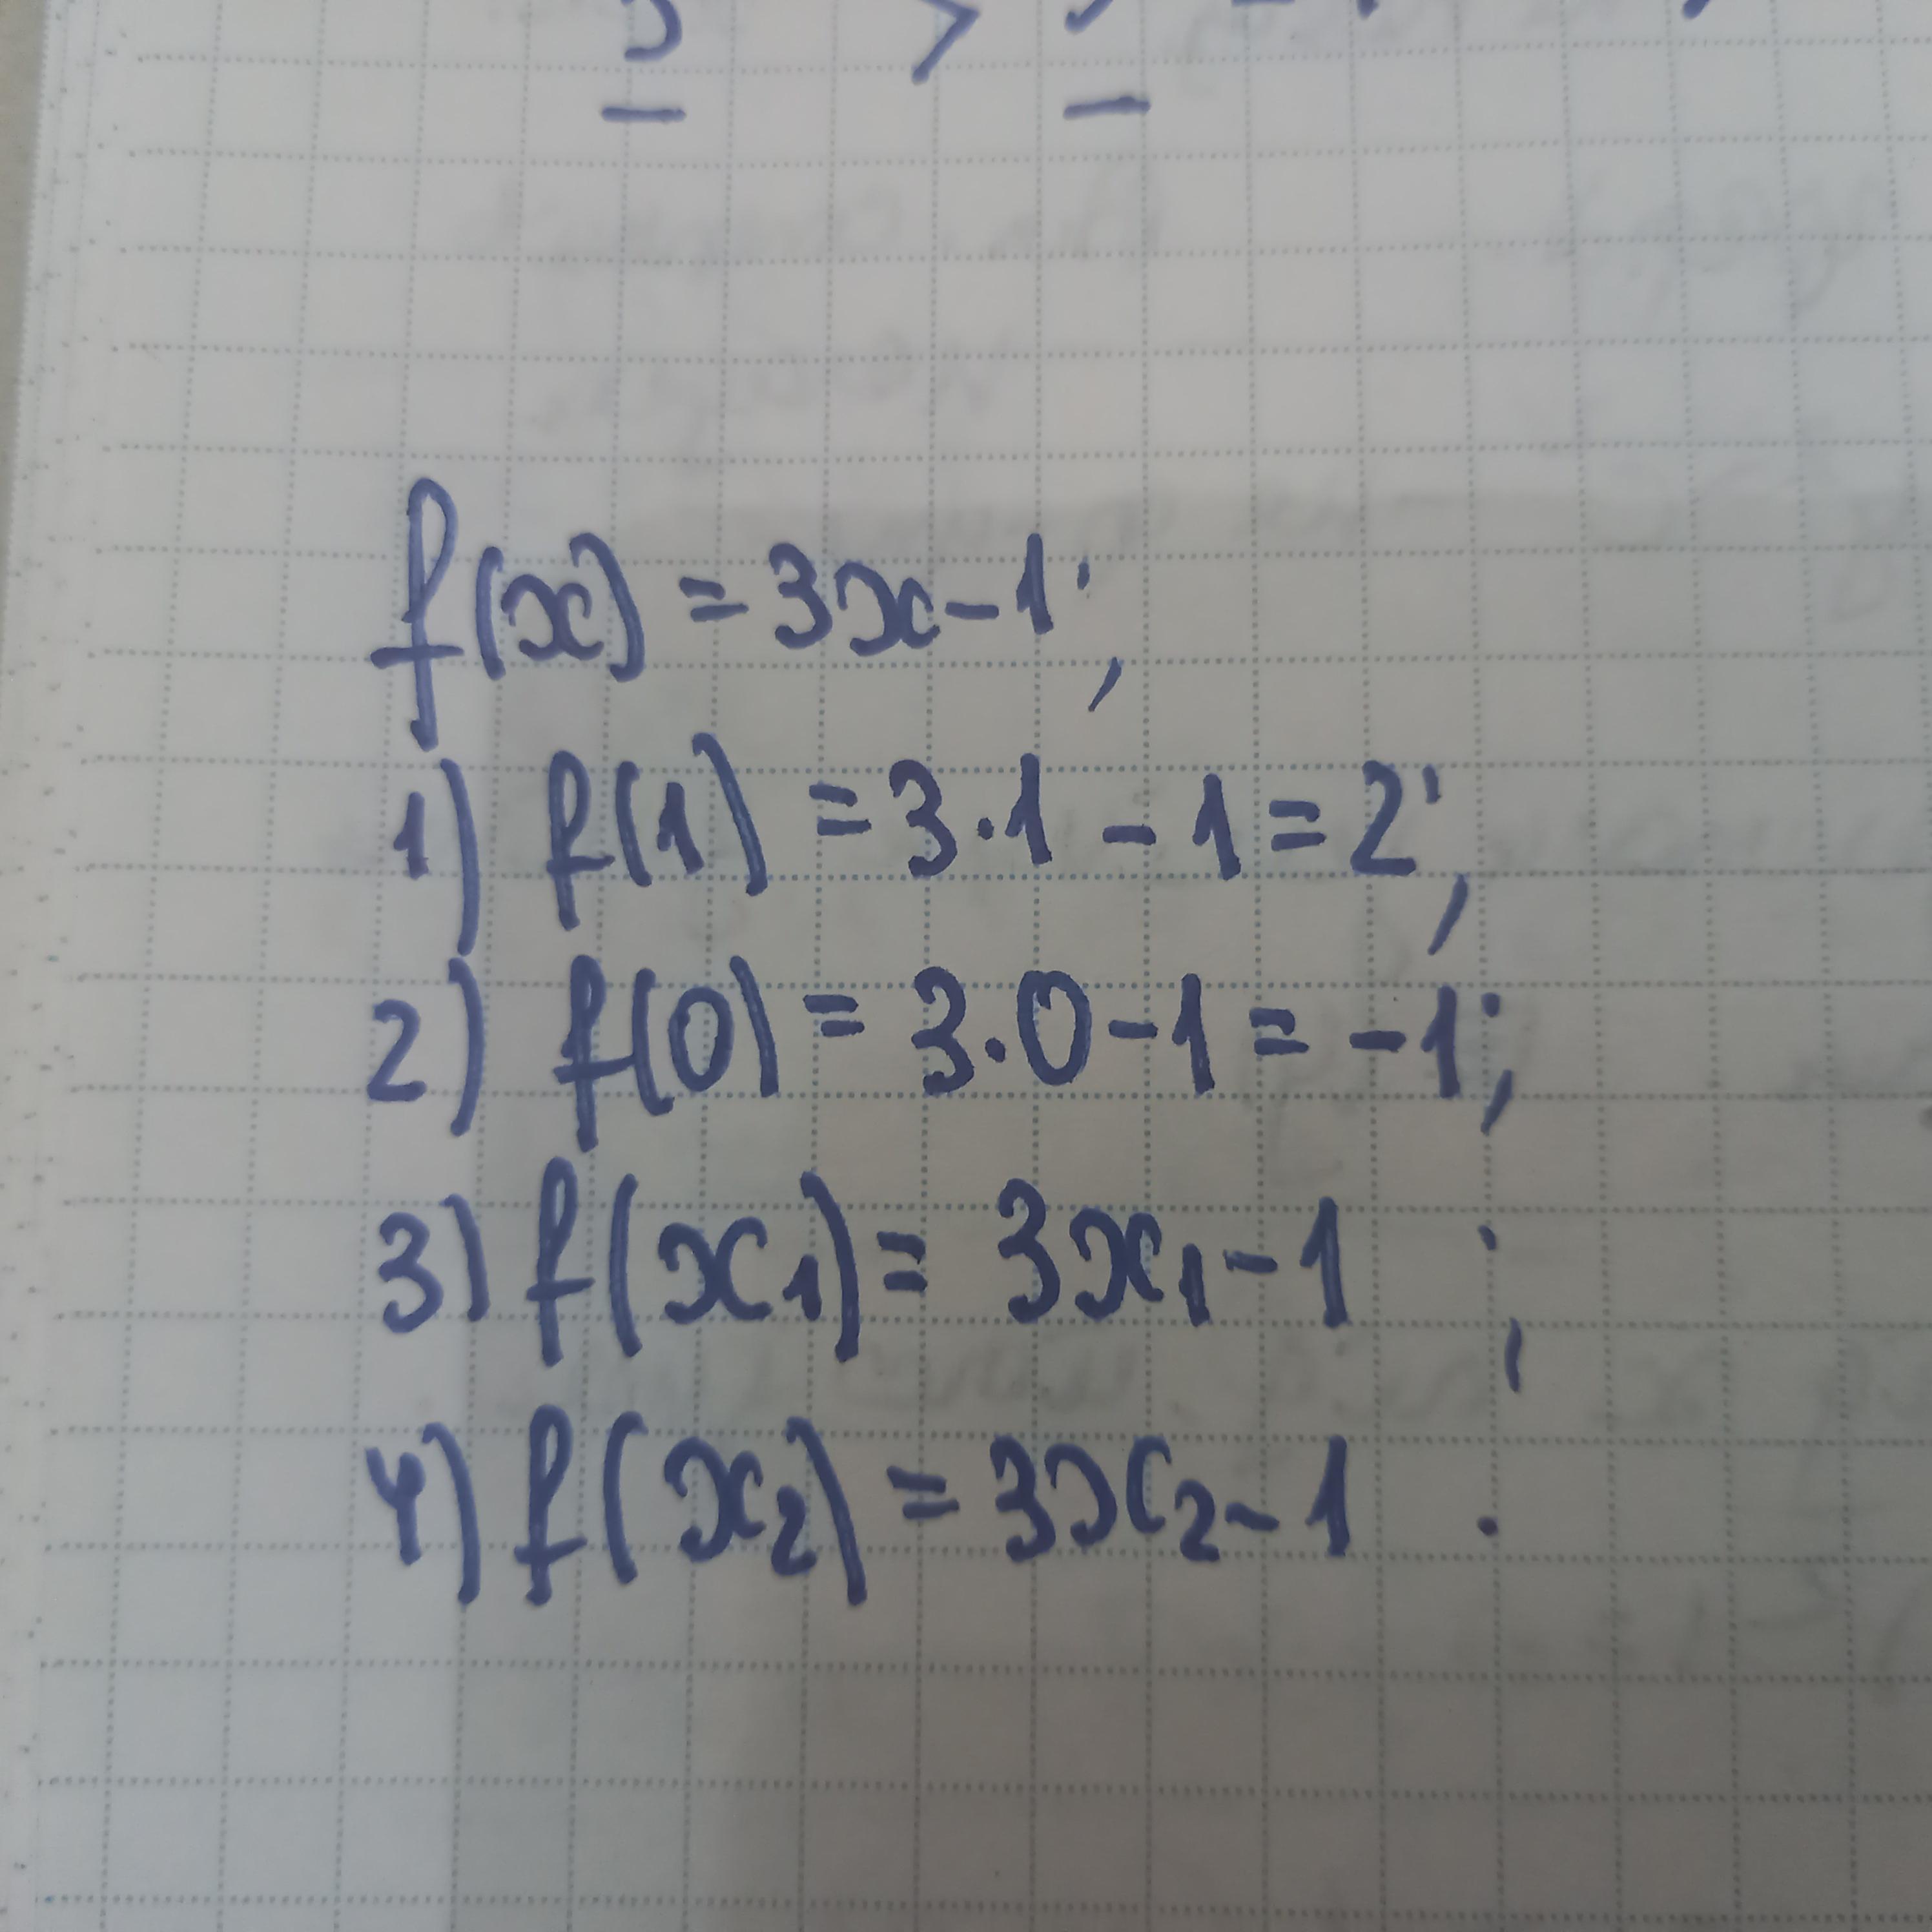 f(x) = 3x - 1;
1) f(1) = 3·1 - 1 = 2;
2) f(0) = 3·0 - 1 = -1;
3) f(x₁) = 3x₁ - 1 ;
4) f(x₂) = 3x₂ - 1 .